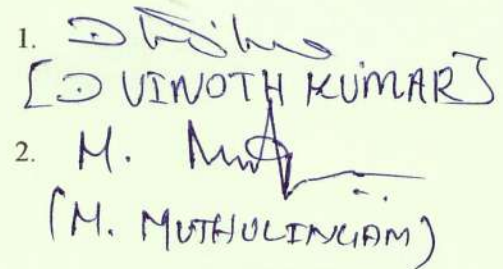 1.
[D VINOTH KUMAR]
2. M.
(M. MUTHULINGAM)